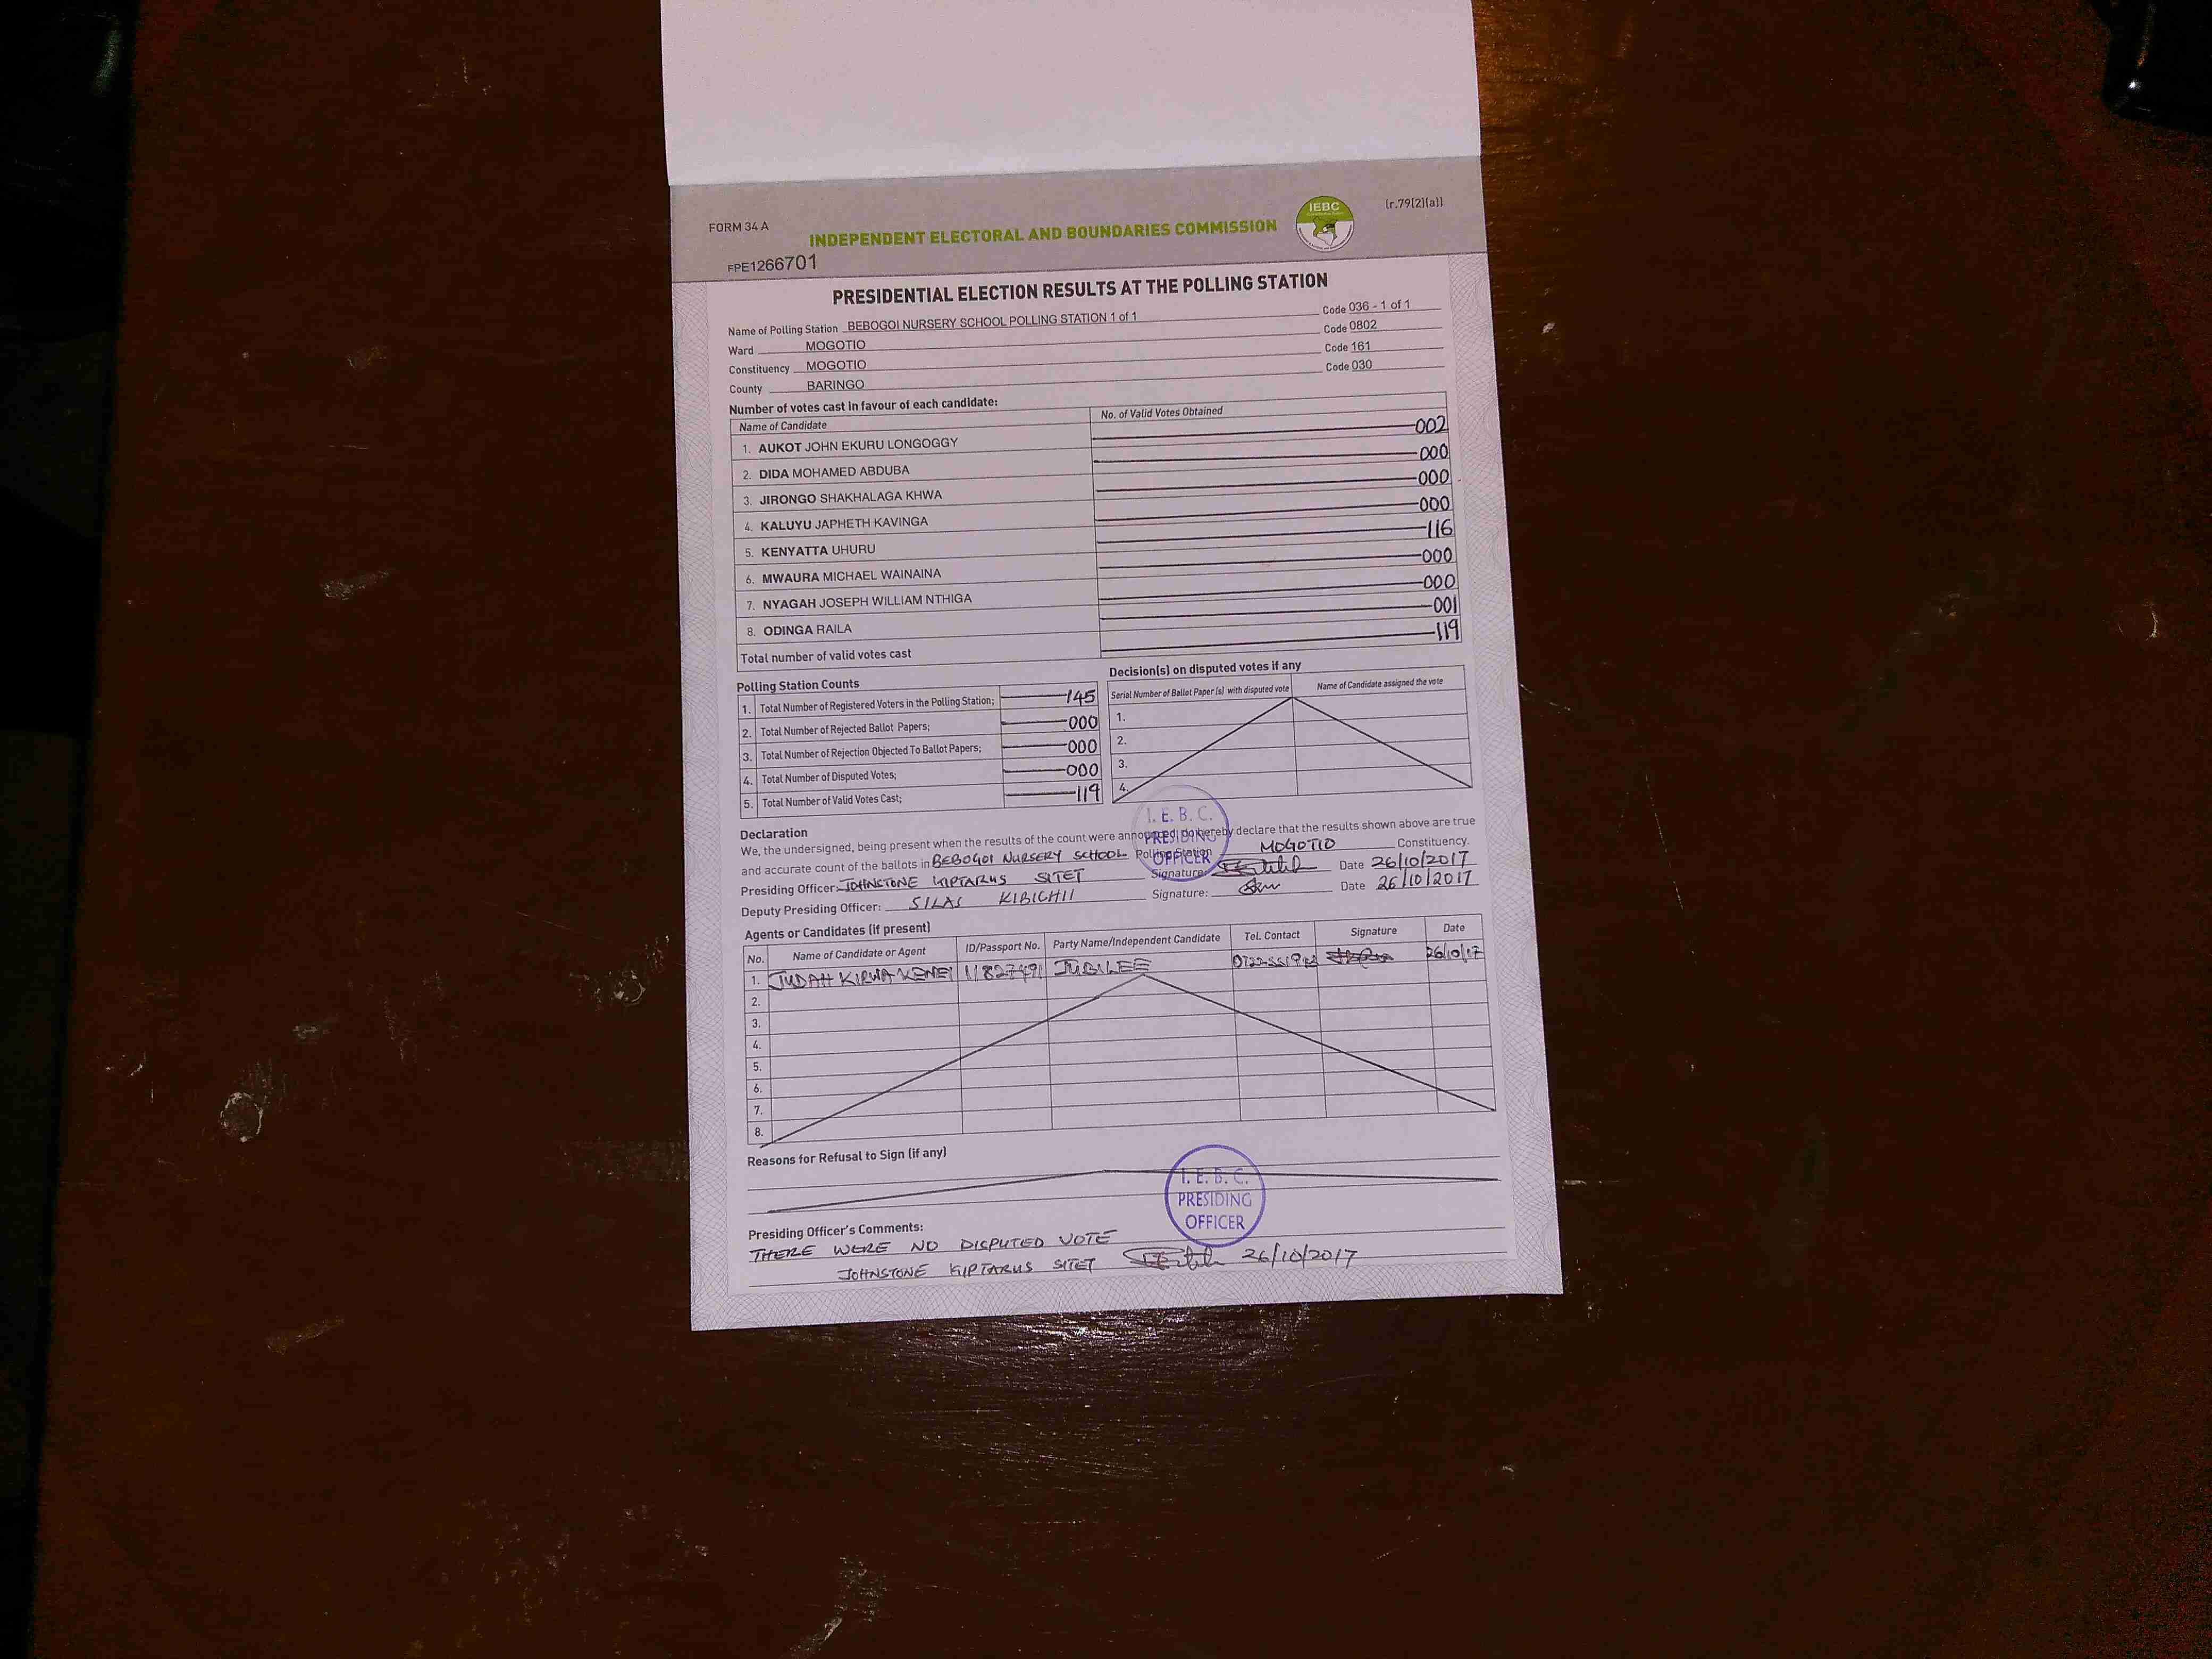 FORM 34 A
INDEPENDENT ELECTORAL AND BOUNDARIES COMMISSION
IEBC
(r.79(2)(a))
FPE1266701
PRESIDENTIAL ELECTION RESULTS AT THE POLLING STATION
Name of Polling Station BEBOGOI NURSERY SCHOOL POLLING STATION 1 of 1 Code 036 - 1 of 1
Ward MOGOTIO Code 0802
Constituency MOGOTIO Code 161
County BARINGO Code 030
Number of votes cast in favour of each candidate:
Name of Candidate No. of Valid Votes Obtained
1. AUKOT JOHN EKURU LONGOGGY 002
2. DIDA MOHAMED ABDUBA 000
3. JIRONGO SHAKHALAGA KHWA 000
4. KALUYU JAPHETH KAVINGA 000
5. KENYATTA UHURU 116
6. MWAURA MICHAEL WAINAINA 000
7. NYAGAH JOSEPH WILLIAM NTHIGA 000
8. ODINGA RAILA 001
Total number of valid votes cast 119
Polling Station Counts
1. Total Number of Registered Voters in the Polling Station; 145
2. Total Number of Rejected Ballot Papers; 000
3. Total Number of Rejection Objected To Ballot Papers; 000
4. Total Number of Disputed Votes; 000
5. Total Number of Valid Votes Cast; 119
Decision(s) on disputed votes if any
Serial Number of Ballot Paper (s) with disputed vote Name of Candidate assigned the vote
1.
2.
3.
4.
I. E. B. C.
PRESIDING
OFFICER
Declaration
We, the undersigned, being present when the results of the count were announced, do hereby declare that the results shown above are true
and accurate count of the ballots in BEBOGOI NURSERY SCHOOL Polling Station MOGOTIO Constituency.
Presiding Officer: JOHNSTONE KIPTARUS SITET Signature: Date 26/10/2017
Deputy Presiding Officer: SILAS KIBICHII Signature: Date 26/10/2017
Agents or Candidates (if present)
No. Name of Candidate or Agent ID/Passport No. Party Name/Independent Candidate Tel. Contact Signature Date
1. JUDAH KIRWA KENEI JUBILEE 26/10/17
2.
3.
4.
5.
6.
7.
8.
Reasons for Refusal to Sign (if any)
I. E. B. C.
PRESIDING
OFFICER
Presiding Officer's Comments:
THERE WERE NO DISPUTED VOTE
JOHNSTONE KIPTARUS SITET 26/10/2017